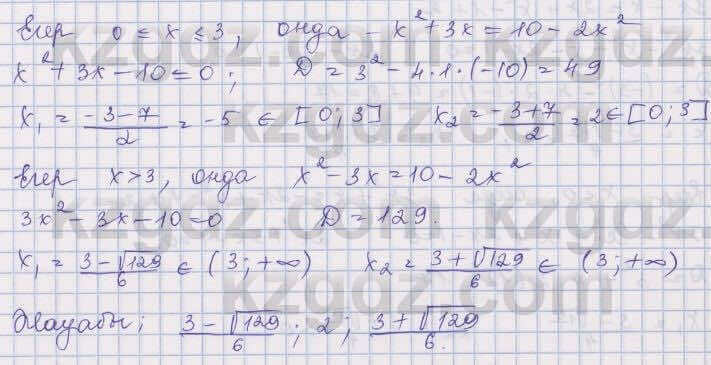 Егер 0 ≤ x ≤ 3, онда - x² + 3x = 10 - 2x²
x² + 3x - 10 = 0; D = 3² - 4·1·(-10) = 49
x₁ = (-3-7)/2 = -5 ∈ [0; 3] x₂ = (-3+7)/2 = 2 ∈ [0; 3]
Егер x > 3, онда x² - 3x = 10 - 2x²
3x² - 3x - 10 = 0 D = 129.
x₁ = (3-√129)/6 ∈ (3; +∞) x₂ = (3+√129)/6 ∈ (3; +∞)
Жауабы; (3-√129)/6 ; 2 ; (3+√129)/6.
kzgdz.com